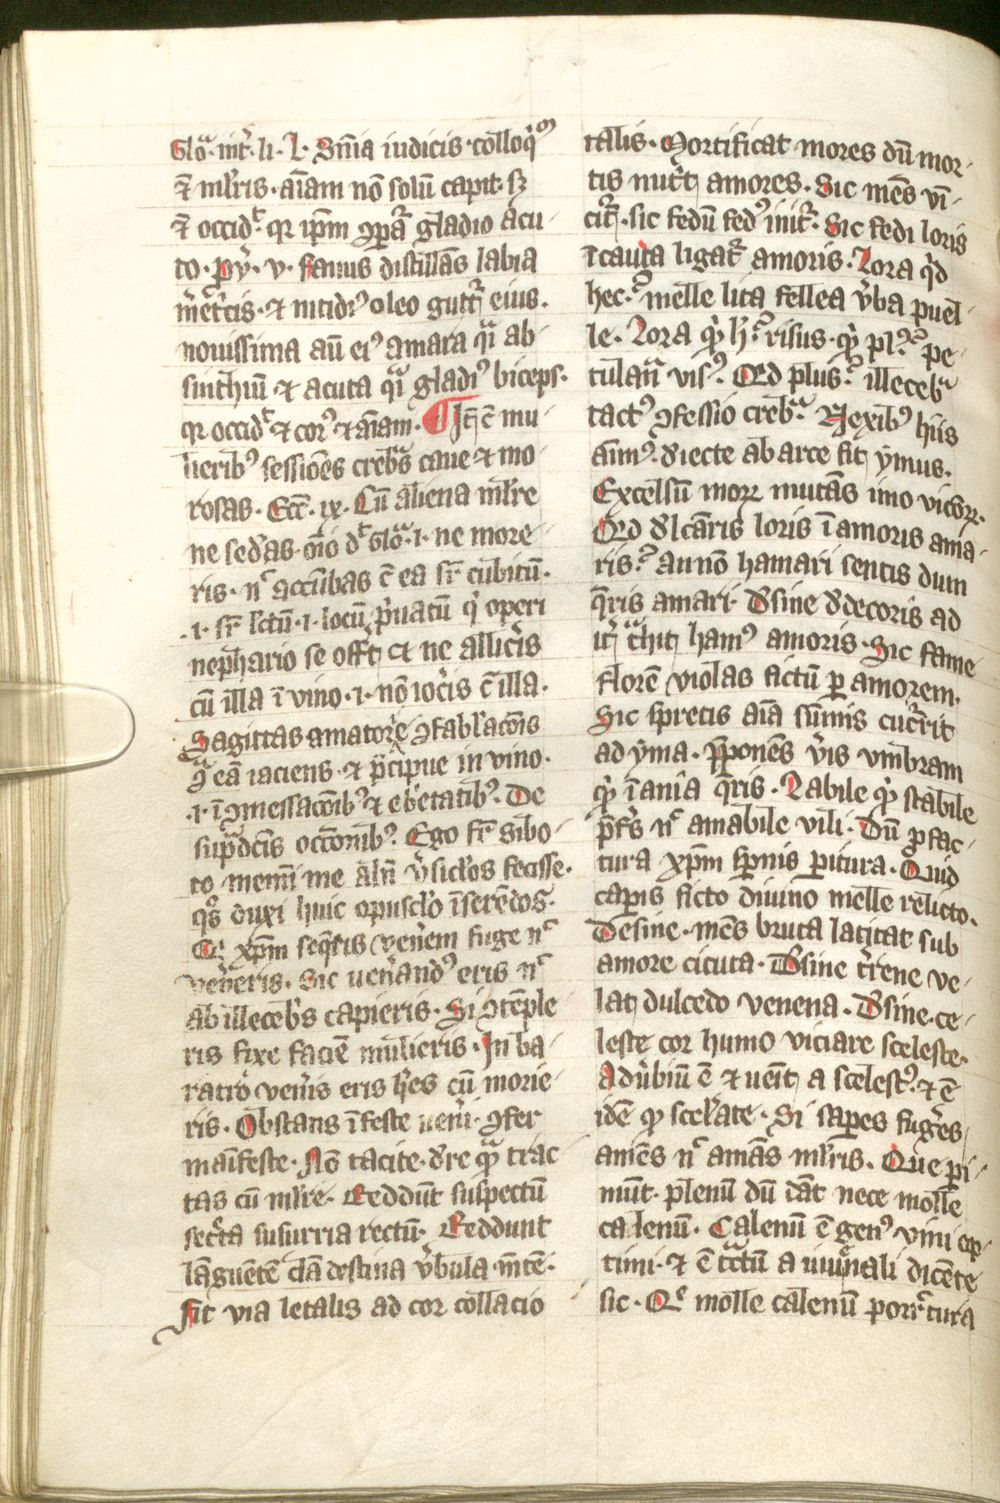 Glo͛. int͛. li. l. Sn̄ia iudicis. colloq͛m
⁊̄ ml̄ris. aīam nō solū capit. sꝫ
⁊̄ occid͛. qꝛ ip̄m ꝑat͛ gladio acu
to. ꝓv͛. v. Fauus distillās labia
m̄et͛cis. ⁊ nitidꝰ oleo gutt͛ eius.
nouissima aū eiꝰ amara q͛i ab
sinthiū ⁊ acuta q͛i gladiꝰ biceps.
qꝛ occid͛ ⁊ corꝰ ⁊ aīam. ¶ Jt̄ c̄ mu
lieribꝰ sessiōes creb͛s caue ⁊ mo
rosas. Ecc̄. ix. Cū aliena ml̄re
ne sedeas. glo͛. i. ne more
ris. n͛ accūbas c̄ ea sr̄ cubitū.
.i. sr̄ lc̄tū. i. locū p͛uatū q͛ operi
nephario se off͛t ct ne allic͛is
cū illa ī vino. i. nō ioc͛is c̄ illa.
Sagittas amator͛e ꝯfabl̄acōis
ī eā iaciens. ⁊ p͛cipue in vino.
.i. ī ꝯmessacōibꝰ ⁊ eb͛etatibꝰ. De
sup͛dc̄is occōnibꝰ. Ego fr̄ sibo
to memī me al̄n̄ v͛sicl̄os fecisse.
q͛s duxi huic opuscl̄o īserēdos.
xp̄m seq͛ris ven͛em fuge n͛
ven͛eris. Sic uen͛andꝰ eris n͛
ab illeceb͛s capieris. Si ꝯtēple
ris fixe faciē mulieris. Jn ba
ratro ven͛is eris h͛es cū morie
ris. Obstans īfeste uen͛i. ꝯfer
maīfeste. Nō tacite. d͛re q͛ trac
tas cū ml̄re. Reddūt suspectū
sec͛ta susurria rectū. Reddunt
lāguētē clādestina v͛bula mētē.
Fit via letalis ad cor collacio
talis. Mortificat mores dū mor
tis nut͛t amores. Sic mēs vī
cit͛. sic fedū fedꝰ init͛. Sic fedi loris
icauta ligat͛ amoris. Lora q͛d
hec. melle lita fellea v͛ba puel
le. Lora q͛ h͛ risus. q͛ pl͛ pe
tulan͛ visꝰ. Qd plus illeceb͛
tactꝰ ꝯfessio creb͛. Nexibꝰ hiis
aīmꝰ. d͛iecte ab arce fit ymus.
Excelsū morꝝ mutās imo vicōꝝ.
Qd d͛lcāris loris ī amoris ama
ris. an nō hamari sentis dum
q͛ris amari. D͛sine d͛decoris ad
it͛ t͛hit hamꝰ amoris. Sic fame
florē violas fictū ꝑ amorem.
Sic spretis aīa sūmis cuc͛rit
ad yma. P̄ponēs v͛is vmbram
q͛ ī anīa q͛ris. Labile q͛ stabile
p͛f͛s n͛ amabile vili. Dū ꝓ fac
tura xp̄m spernis ꝑitura. Quid
capis ficto diuino melle relicto.
Desine. mēs bruta latitat sub
amore cicuta. D͛sine t͛rene ve
lat dulcedo venena. D͛sine. ce
leste cor humo viciare sceleste.
Adu͛biū ē ⁊ uēit a scelestꝰ. ⁊ ē
idē qꝫ scel͛ate. Si sapes fug͛es
amēs n͛ amās ml̄ris. Que pi
mūt. plenū dū dāt nece molle
calenū. Calenū ē genꝰ vini op
timi. ⁊ ē t͛ctū a iuuenali dicēte
sic. Q͛ molle calenū porr͛ctura